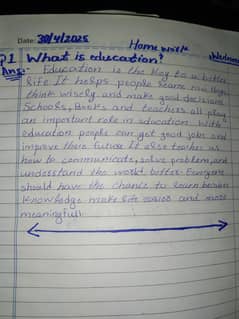 Date: 30/4/2025
Home work
Wednes
Q1 What is education?
Ans:- Education is the Key to a better
life It helps people learn new things
think wisely and make good decisions
Schools, Books and teachers all play
an important role in education. With
education people can get good jobs and
improve their future It also teaches us
how to communicate, solve problem, and
understand the world better. Everyone
should have the chance to learn because
Knowledge make life easier and more
meaningful.